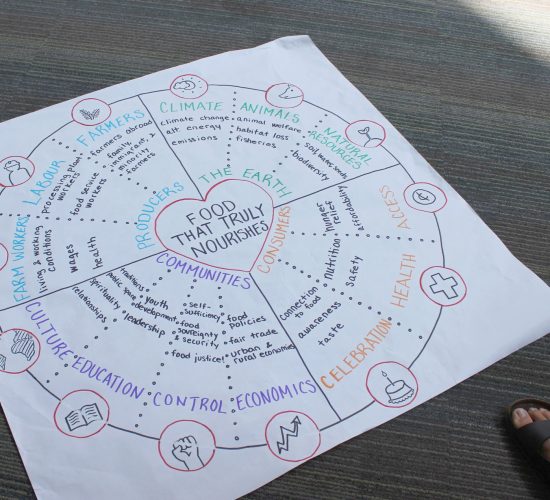 FOOD
THAT TRULY
NOURISHES
THE EARTH
CLIMATE
climate change
alt energy
emissions
ANIMALS
animal welfare
habitat loss
fisheries
NATURAL
RESOURCES
soil, water, seeds
biodiversity
CONSUMERS
ACCESS
affordability
hunger
relief
HEALTH
nutrition
safety
CELEBRATION
connection
to food
awareness
taste
COMMUNITIES
ECONOMICS
food
policies
fair trade
urban &
rural economies
CONTROL
self-
sufficiency
food
sovereignty
& security
food justice!
EDUCATION
youth
development
leadership
CULTURE
traditions
spirituality
relationships
PRODUCERS
FARM WORKERS
living & working
conditions
wages
health
LABOUR
processing plant
workers
food service
workers
FARMERS
farmers abroad
family,
immigrant, &
minority
farmers